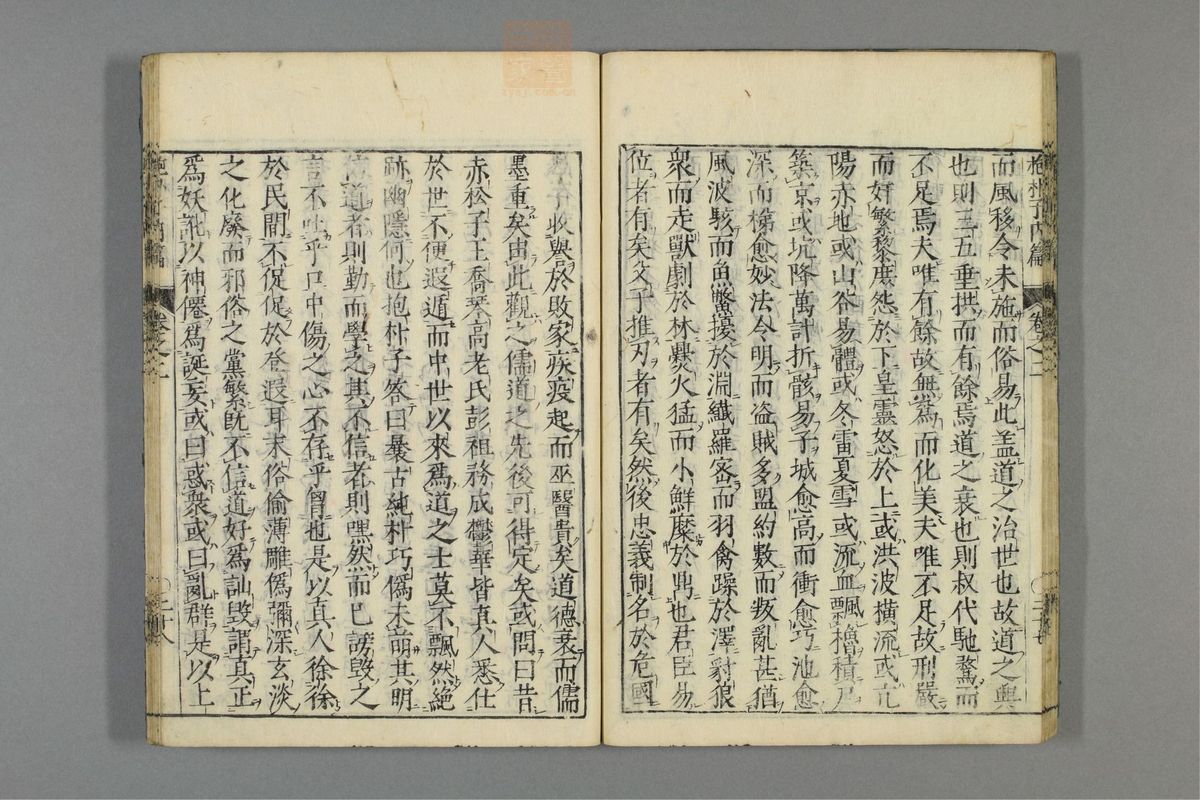 抱朴子内篇 卷之二
而風移令未施而俗易此盖道之治世也故道之興
也則三五垂拱而有餘焉道之衰也則叔代馳騖而
不足焉夫唯有餘故無爲而化美夫唯不足故刑嚴
而奸繁黎庶怨於下皇靈怒於上或洪波橫流或亢
陽赤地或山谷易體或冬雷夏雪或流血飄櫓積尸
築京或坑降萬計折骸易子城愈高而衝愈巧池愈
深而梯愈妙法令明而盗賊多盟約數而叛亂甚猶
風波駭而魚鱉擾於淵纎羅密而羽禽躁於澤豺狼
衆而走獸劇於林爨火猛而小鮮糜於鼎也君臣易
位者有矣父子推刃者有矣然後忠義制名於危國
孝子收譽於敗家疾疫起而巫醫貴矣道德衰而儒
墨重矣由此觀之儒道之先後可得定矣或問曰昔
赤松子王喬琴高老氏彭祖務成欝華皆真人悉仕
於世不便遐遁而中世以來爲道之士莫不飄然絶
跡幽隱何也抱朴子答曰曩古純朴巧僞未萌其明
信道者則勤而學之其不信者則嘿然而已謗毀之
言不吐乎口中傷之心不存乎胷也是以真人徐徐
於民間不促促於登遐耳末俗偷薄雕僞彌深玄淡
之化廢而邪俗之黨繁旣不信道好爲訕毀謂真正
爲妖訛以神僊爲誕妄或曰惑衆或曰亂群是以上
内篇 卷之二